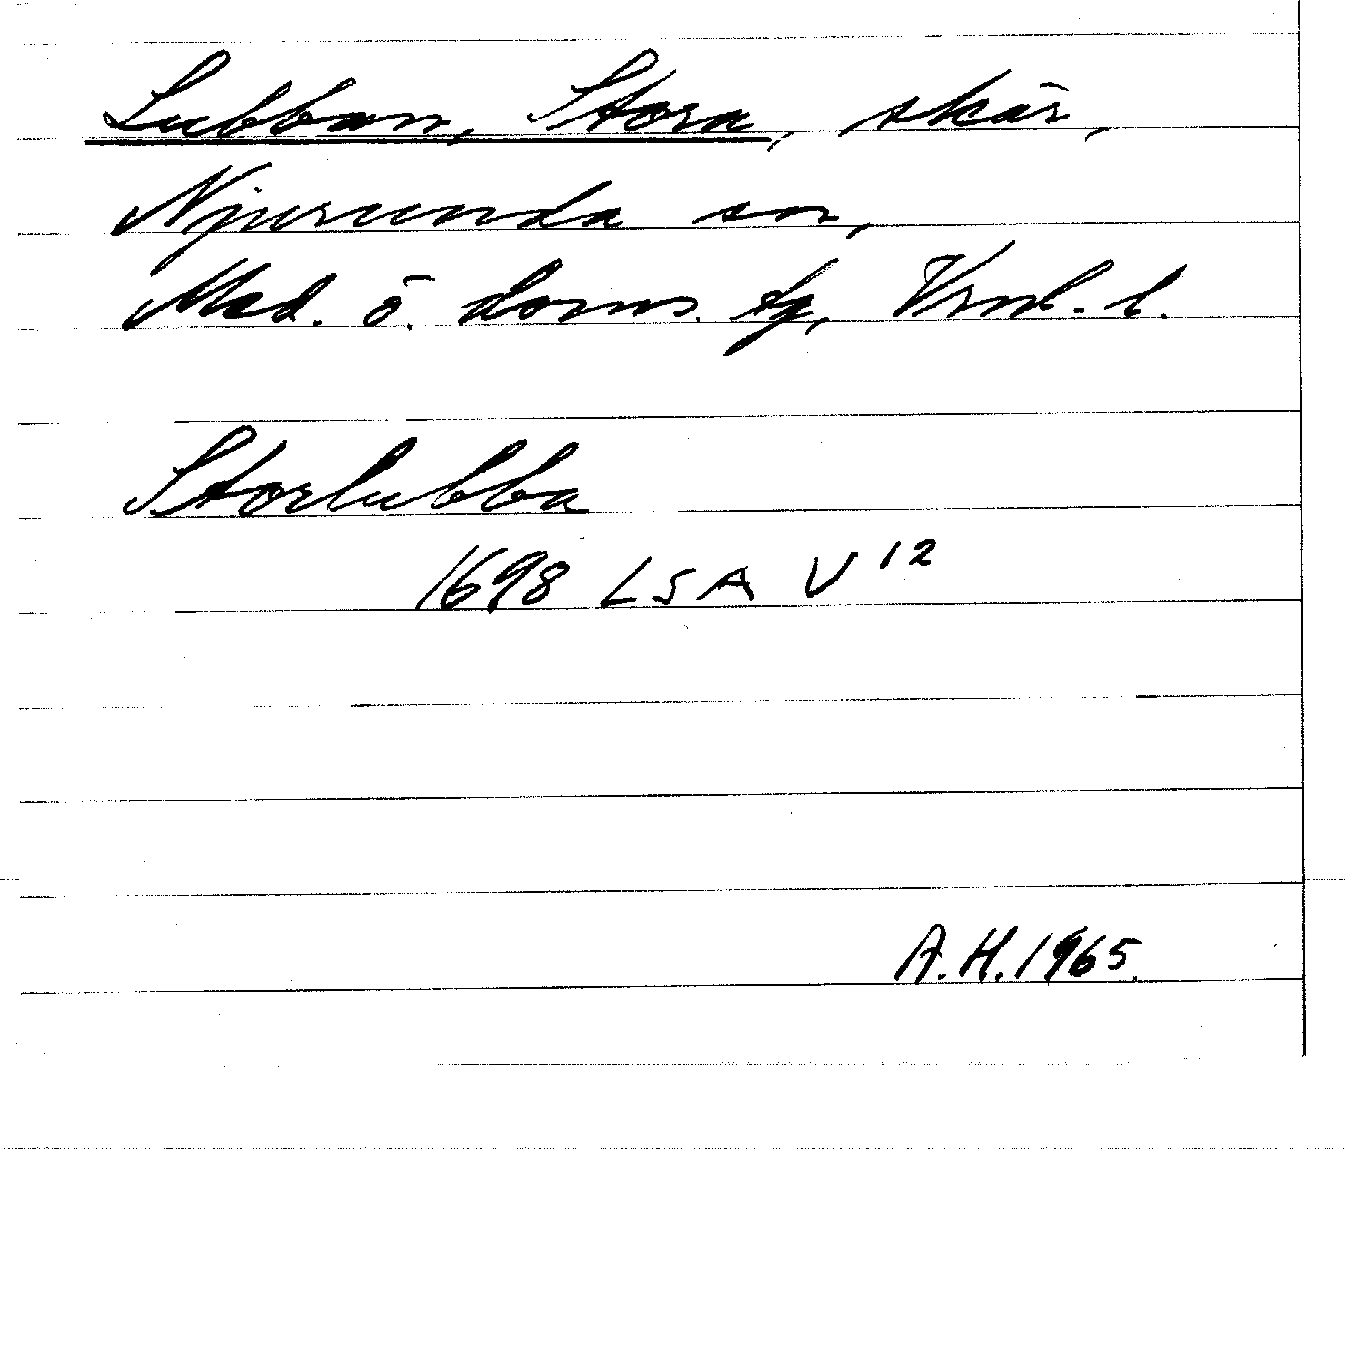 Lubban, Stora, skär,
Njurunda sn,
Med. ö. doms. tg, Vrnl. l.
Storlubba
1698 LSA V 12
A.H. 1965.